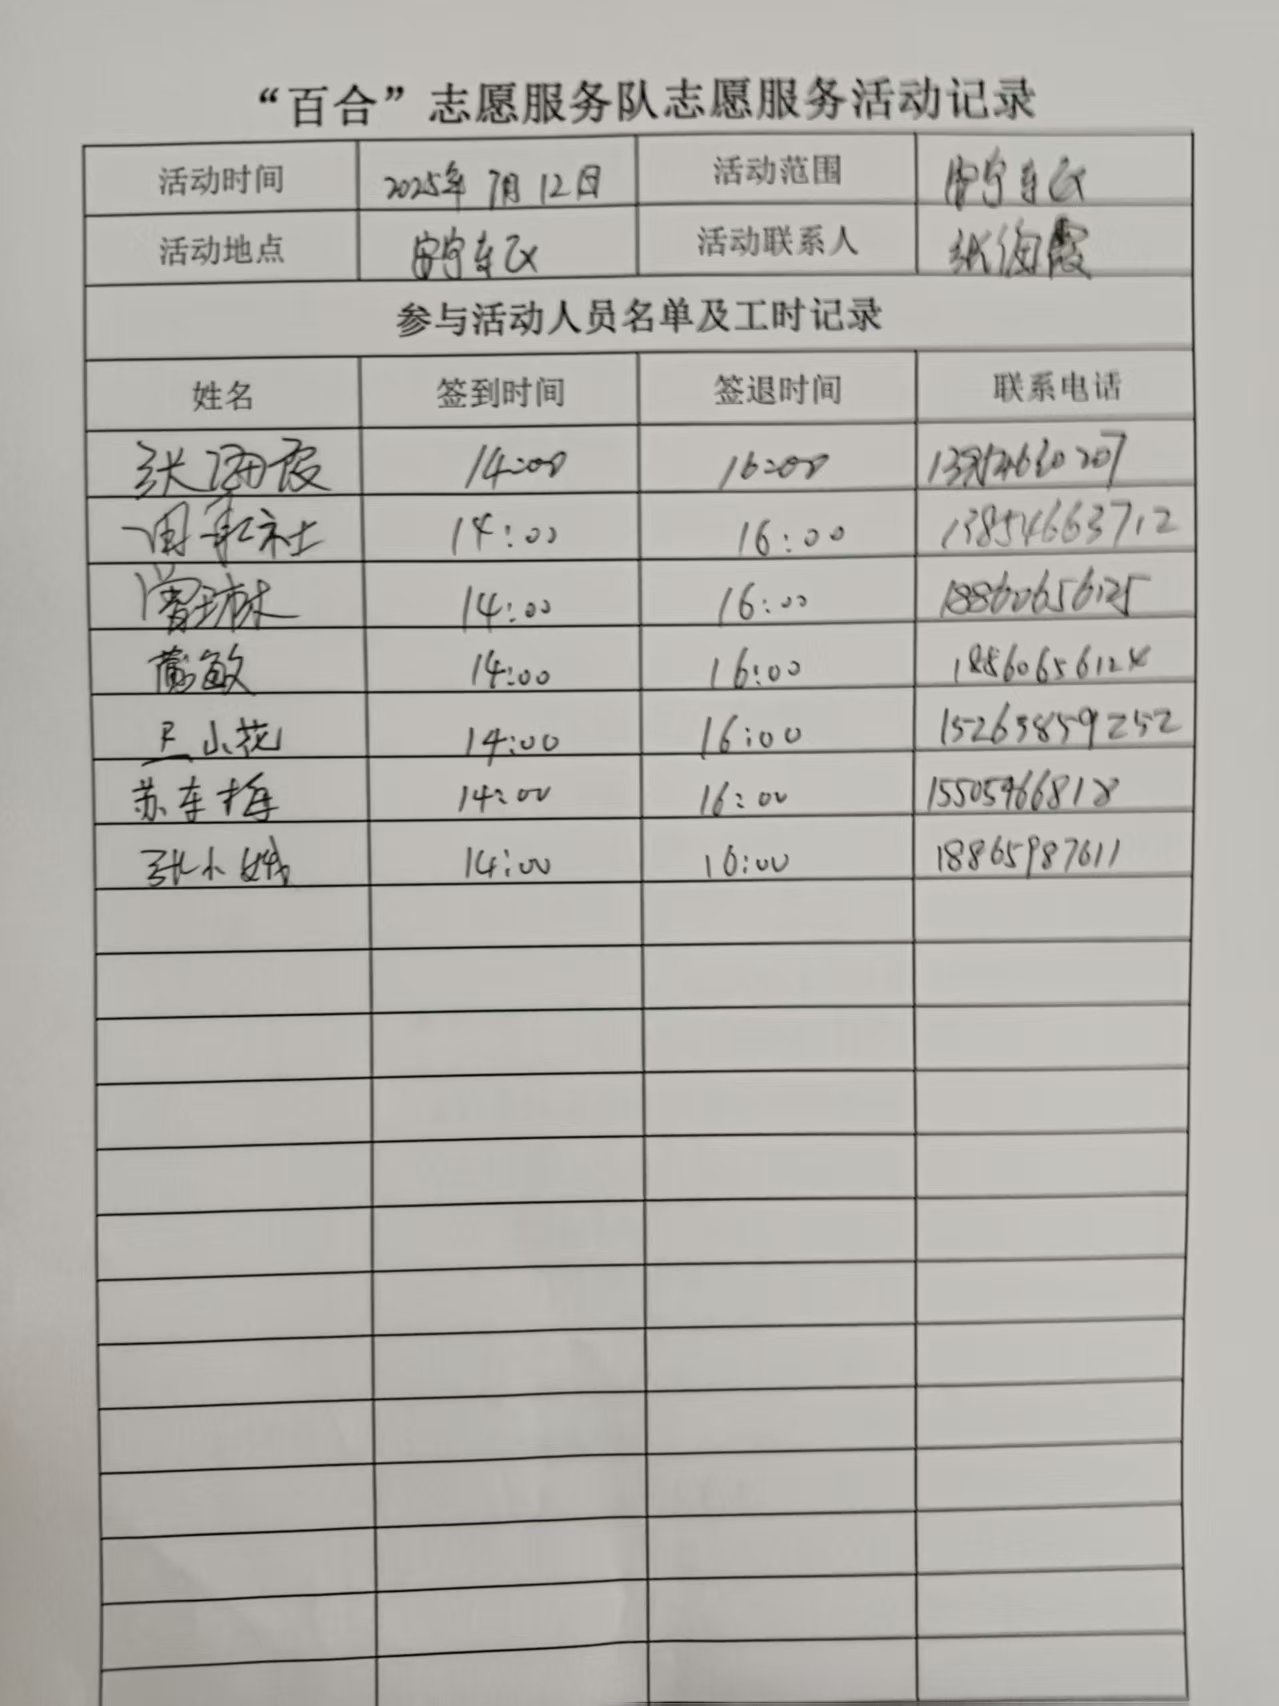 “百合”志愿服务队志愿服务活动记录
活动时间 2025年 7月 12日 活动范围 安宁东区
活动地点 安宁东区 活动联系人 张海霞
参与活动人员名单及工时记录
姓名 签到时间 签退时间 联系电话
张海霞 14:00 16:00
周承社 14:00 16:00 13854663712
曾琳 14:00 16:00 18860656125
敏 14:00 16:00 18860656124
小花 14:00 16:00 15263859252
苏车梅 14:00 16:00 15505466818
张小娥 14:00 16:00 18865987611